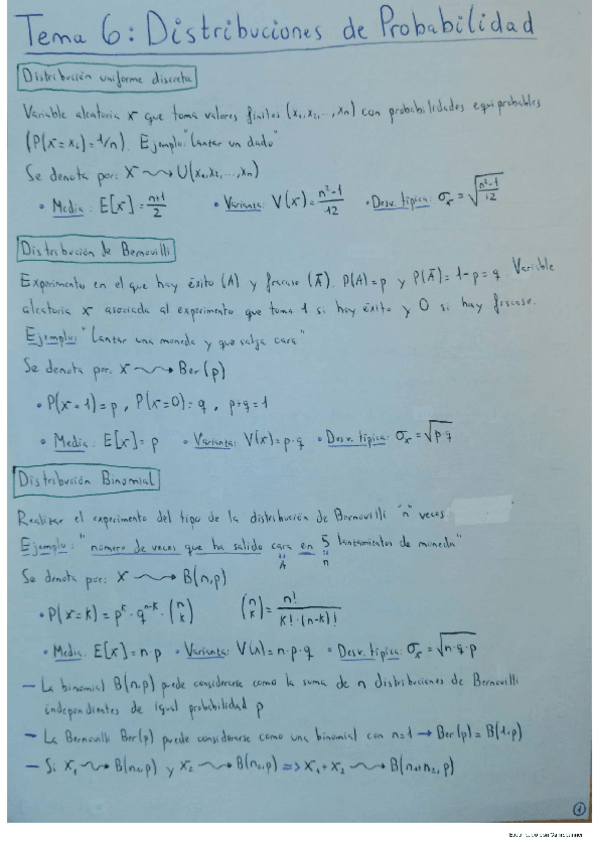 Tema 6: Distribuciones de Probabilidad
Distribución uniforme discreta
Variable aleatoria X que toma valores finitos (x₁, x₂, ..., xₙ) con probabilidades equiprobables
(P(X = xᵢ) = 1/n). Ejemplo: "Lanzar un dado"
Se denota por: X ⟿ U(x₁, x₂, ..., xₙ)
• Media: E[X] = (n+1)/2 • Varianza: V(X) = (n²-1)/12 • Desv. típica: σₓ = √((n²-1)/12)
Distribución de Bernouilli
Experimento en el que hay éxito (A) y fracaso (Ā). P(A) = p y P(Ā) = 1-p = q. Variable
aleatoria X asociada al experimento que toma 1 si hay éxito y 0 si hay fracaso.
Ejemplo: "Lanzar una moneda y que salga cara"
Se denota por: X ⟿ Ber(p)
• P(X=1) = p, P(X=0) = q, p+q = 1
• Media: E[X] = p • Varianza: V(X) = p·q • Desv. típica: σₓ = √(p·q)
Distribución Binomial
Realizar el experimento del tipo de la distribución de Bernouilli "n" veces
Ejemplo: "número de veces que ha salido cara en 5 lanzamientos de moneda"
A n
Se denota por: X ⟿ B(n,p)
• P(X=K) = pᴷ · qⁿ⁻ᴷ · (n K) (n K) = n! / (K!·(n-K)!)
• Media: E[X] = n·p • Varianza: V(X) = n·p·q • Desv. típica: σₓ = √(n·q·p)
– La binomial B(n,p) puede considerarse como la suma de n distribuciones de Bernouilli
independientes de igual probabilidad p
– La Bernouilli Ber(p) puede considerarse como una binomial con n=1 → Ber(p) = B(1,p)
– Si X₁ ⟿ B(n₁,p) y X₂ ⟿ B(n₂,p) ⇒ X₁+X₂ ⟿ B(n₁+n₂,p)
1